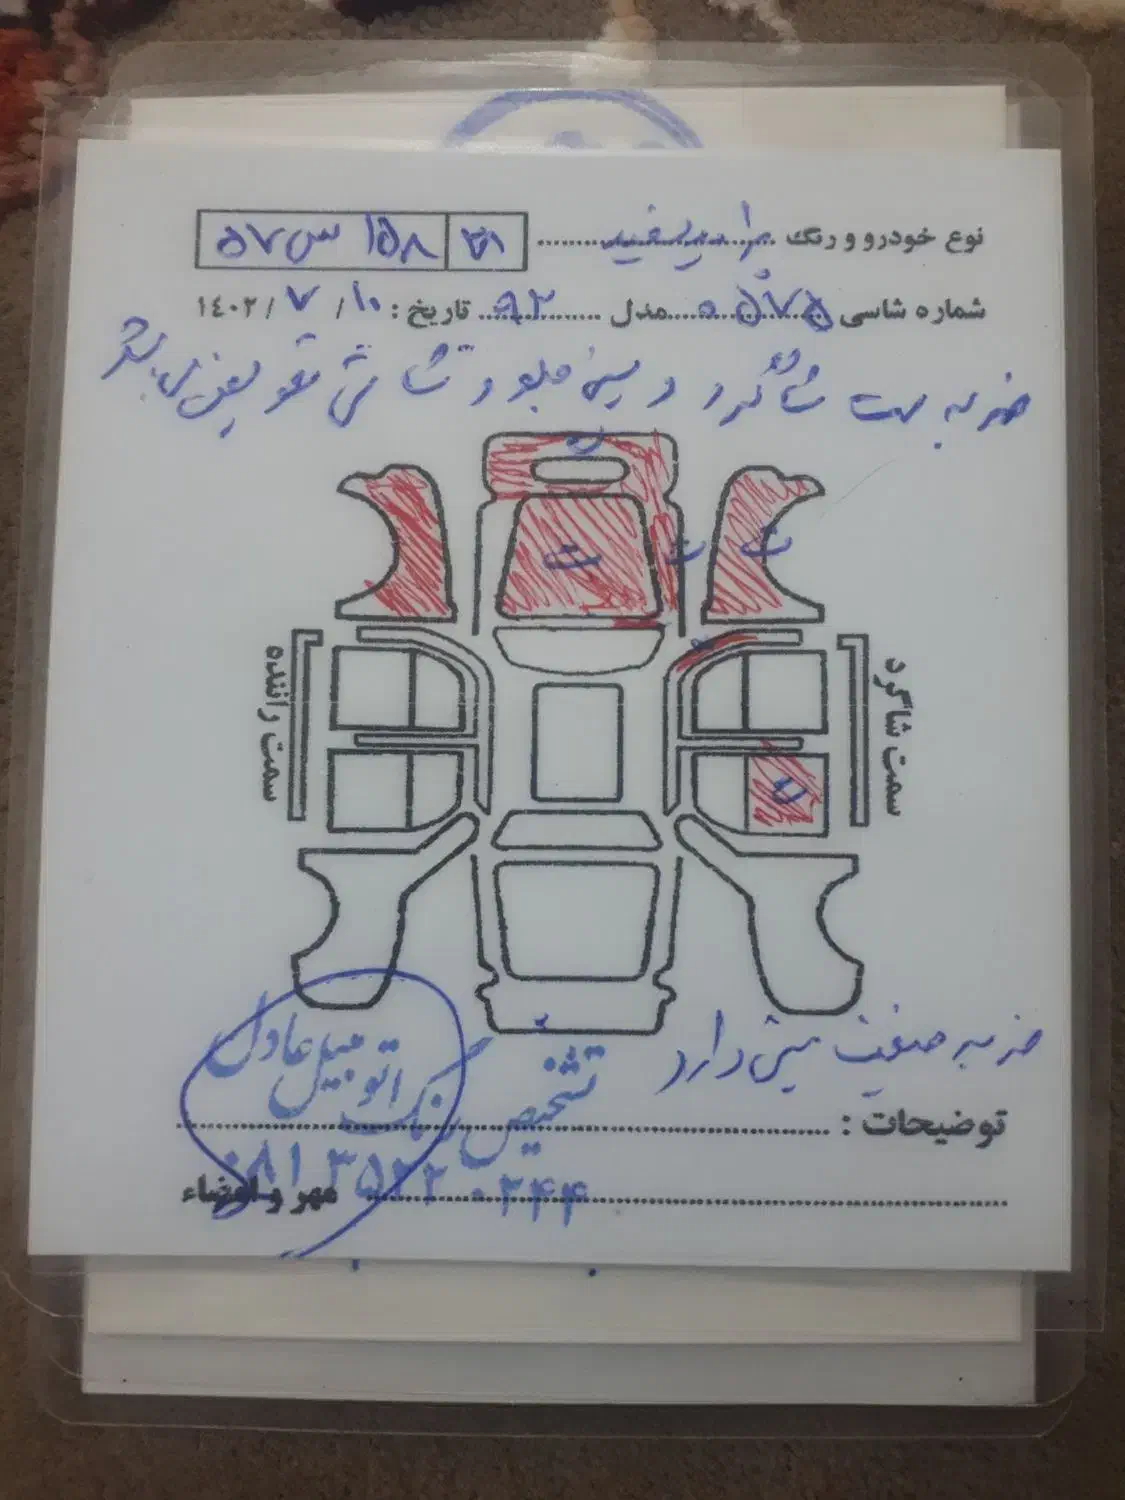 نوع خودرو و رنگ پراید سفید ۱۵۸ س ۵۷
شماره شاسی ۵۷۵۰ مدل ۹۲ تاریخ : ۱۰ / ۷ / ۱۴۰۲
ضربه سمت شاگرد و سینی جلو و شاسی تعویض
ت
ت ت ت
سمت راننده
سمت شاگرد
ت
ضربه ضعیف سینی دارد
تشخیص رنگ اتومبیل عادل
توضیحات :
۰۸۱ ۳۵۲۲۰۳۴۴
مهر و امضاء